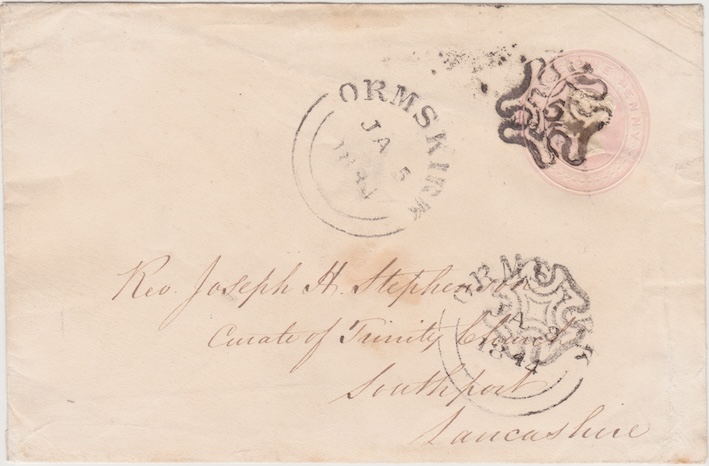 ONE PENNY
ORMSKIRK
JA 5
1844
Rev. Joseph H. Stephenson
Curate of Trinity Church
Southport
Lancashire
ORMSKIRK
JA
1844